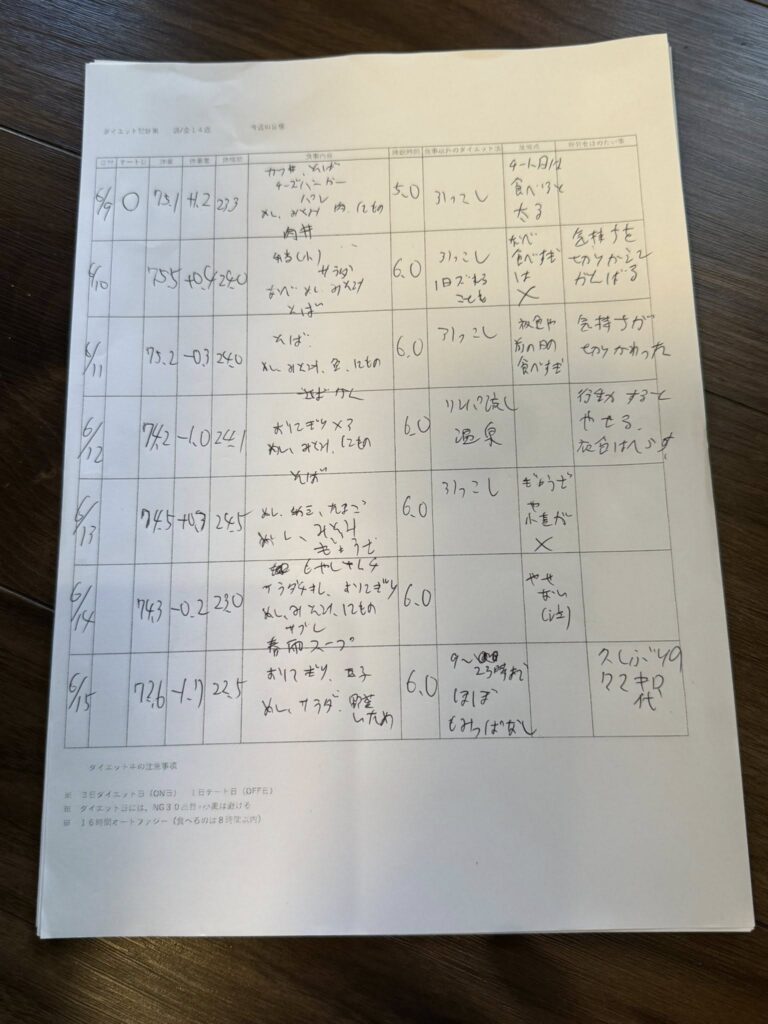 ダイエット記録表
日付 チート日 体重 体重差 体脂肪 食事内容 睡眠時間 食事以外のダイエット法 反省点 自分をほめたい事
6/9 ○ 75.1 +1.2 23.3
チーズバーガー
めし、みそ汁 肉 にもの
5.0
引っこし
チート日は
食べると
太る
6/10 75.5 +0.4 24.0
弁当(小)
サラダ
なべ めし みそ汁
そば
6.0
引っこし
1日ズレる
ことも
なべ
食べすぎ
は
×
気持ちを
切りかえて
がんばる
6/11 75.2 -0.3 24.0
そば
めし、みそ汁、魚、にもの
6.0
引っこし
夜食や
前の日の
食べすぎ
気持ちが
切りかわった
6/12 74.2 -1.0 24.1
おにぎり×3
めし、みそ汁、にもの
6.0
リンパ流し
温泉
行動すると
やせる。
体重はへらす
6/13 74.5 +0.3 24.5
そば
めし、納豆、たまご
めし、みそ汁
ぎょうざ
6.0
引っこし
ぎょうざ
や
小麦が
×
6/14 74.3 -0.2 23.0
もやしサラダ
サラダチキン、おにぎり
めし、みそ汁、にもの
サブレ
6.0
やせ
ない
(泣)
6/15 72.6 -1.7 22.5
春雨スープ
おにぎり、玉子
めし、サラダ、野菜
いため
6.0
9〜
23時まで
ほぼ
もみっぱなし
久しぶりの
72キロ
代
ダイエット中の注意事項
※ 3日ダイエット日(ON日) 1日チート日(OFF日)
※ ダイエット日には、NG30品目・小麦は避ける
※ 16時間オートファジー(食べるのは8時間以内)